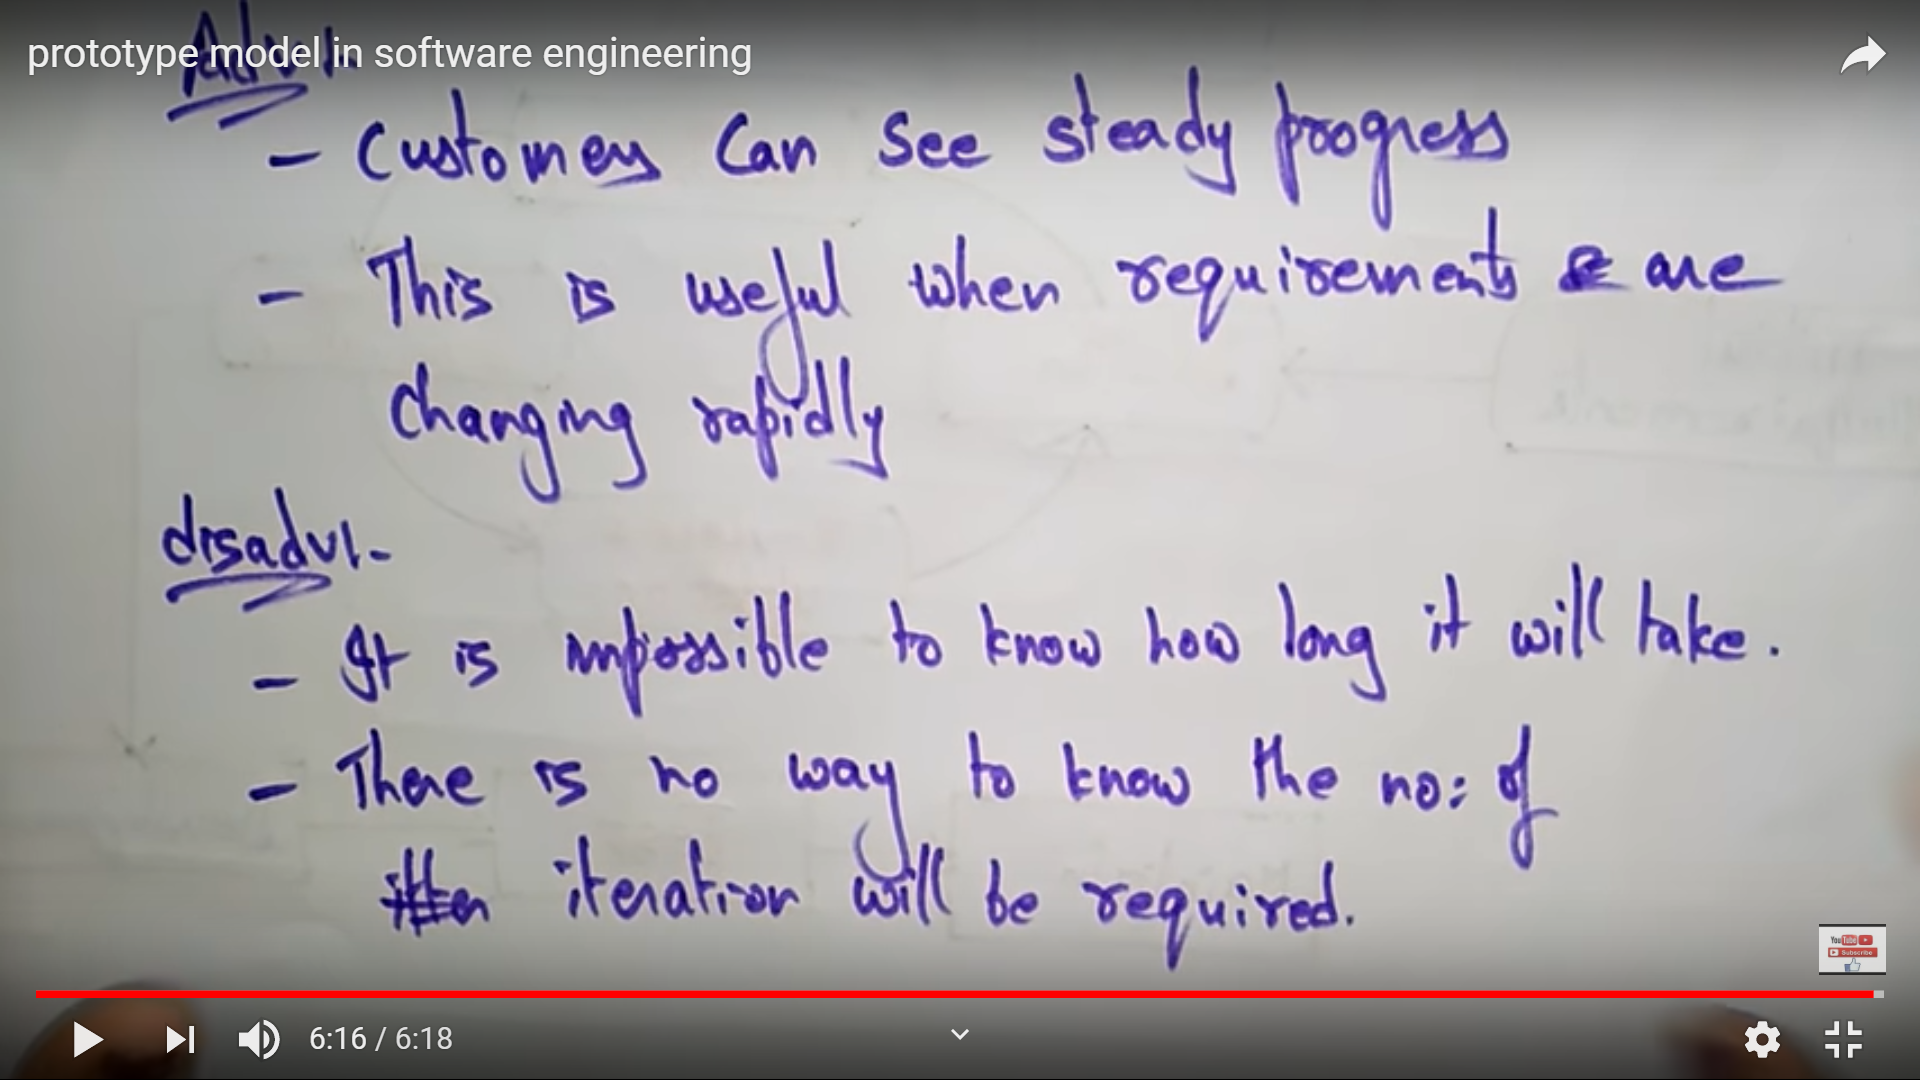 prototype model in software engineering
Advt.
- Customers Can See steady progress
- This is useful when requirements are
changing rapidly
disadvt.
- It is impossible to know how long it will take.
- There is no way to know the no: of
iteration will be required.
YouTube
Subscribe
6:16 / 6:18